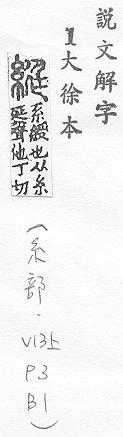 説文解字
1大徐本
綎 系綬也从糸
廷聲他丁切
(糸部·V13上
P3
B1)